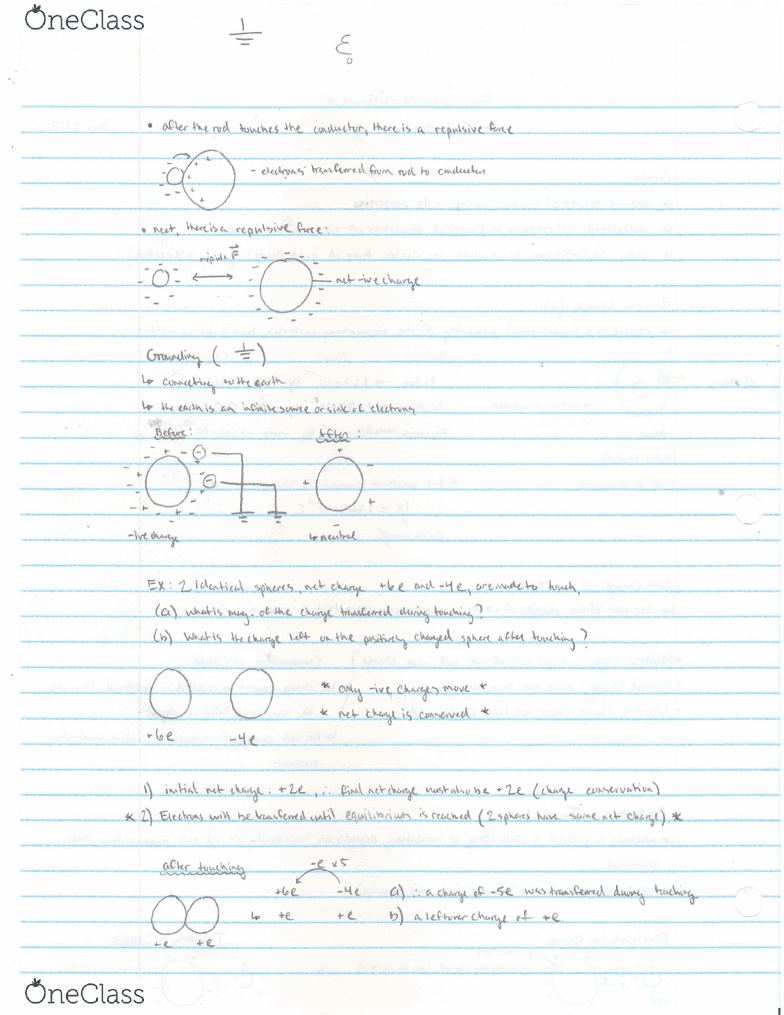 OneClass
ε₀
• after the rod touches the conductor, there is a repulsive force
- electrons transferred from rod to conductor
• next, there is a repulsive force:
repuls. F
net -ive charge
Grounding ( ⏚ )
↳ connecting to the earth
↳ the earth is an infinite source or sink of electrons
Before: After:
-ive charge ↳ neutral
EX: 2 identical spheres, net charge +6e and -4e, are made to touch,
(a) what is mag. of the charge transferred during touching?
(b) What is the charge left on the positively charged sphere after touching?
* only -ive charges move *
* net charge is conserved *
+6e -4e
1) initial net charge: +2e, ∴ final net charge must also be +2e (charge conservation)
* 2) Electrons will be transferred until equilibrium is reached (2 spheres have same net charge). *
after touching
-e x5
+6e -4e a) ∴ a charge of -5e was transferred during touching
↳ +e +e b) a leftover charge of +e
+e +e
OneClass